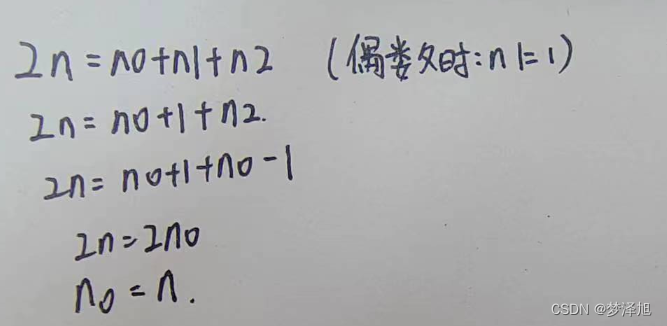 2n = n0+n1+n2 (偶数时:n1=1)
2n = n0+1+n2.
2n = n0+1+n0-1
2n = 2n0
n0 = n.
CSDN @梦泽旭